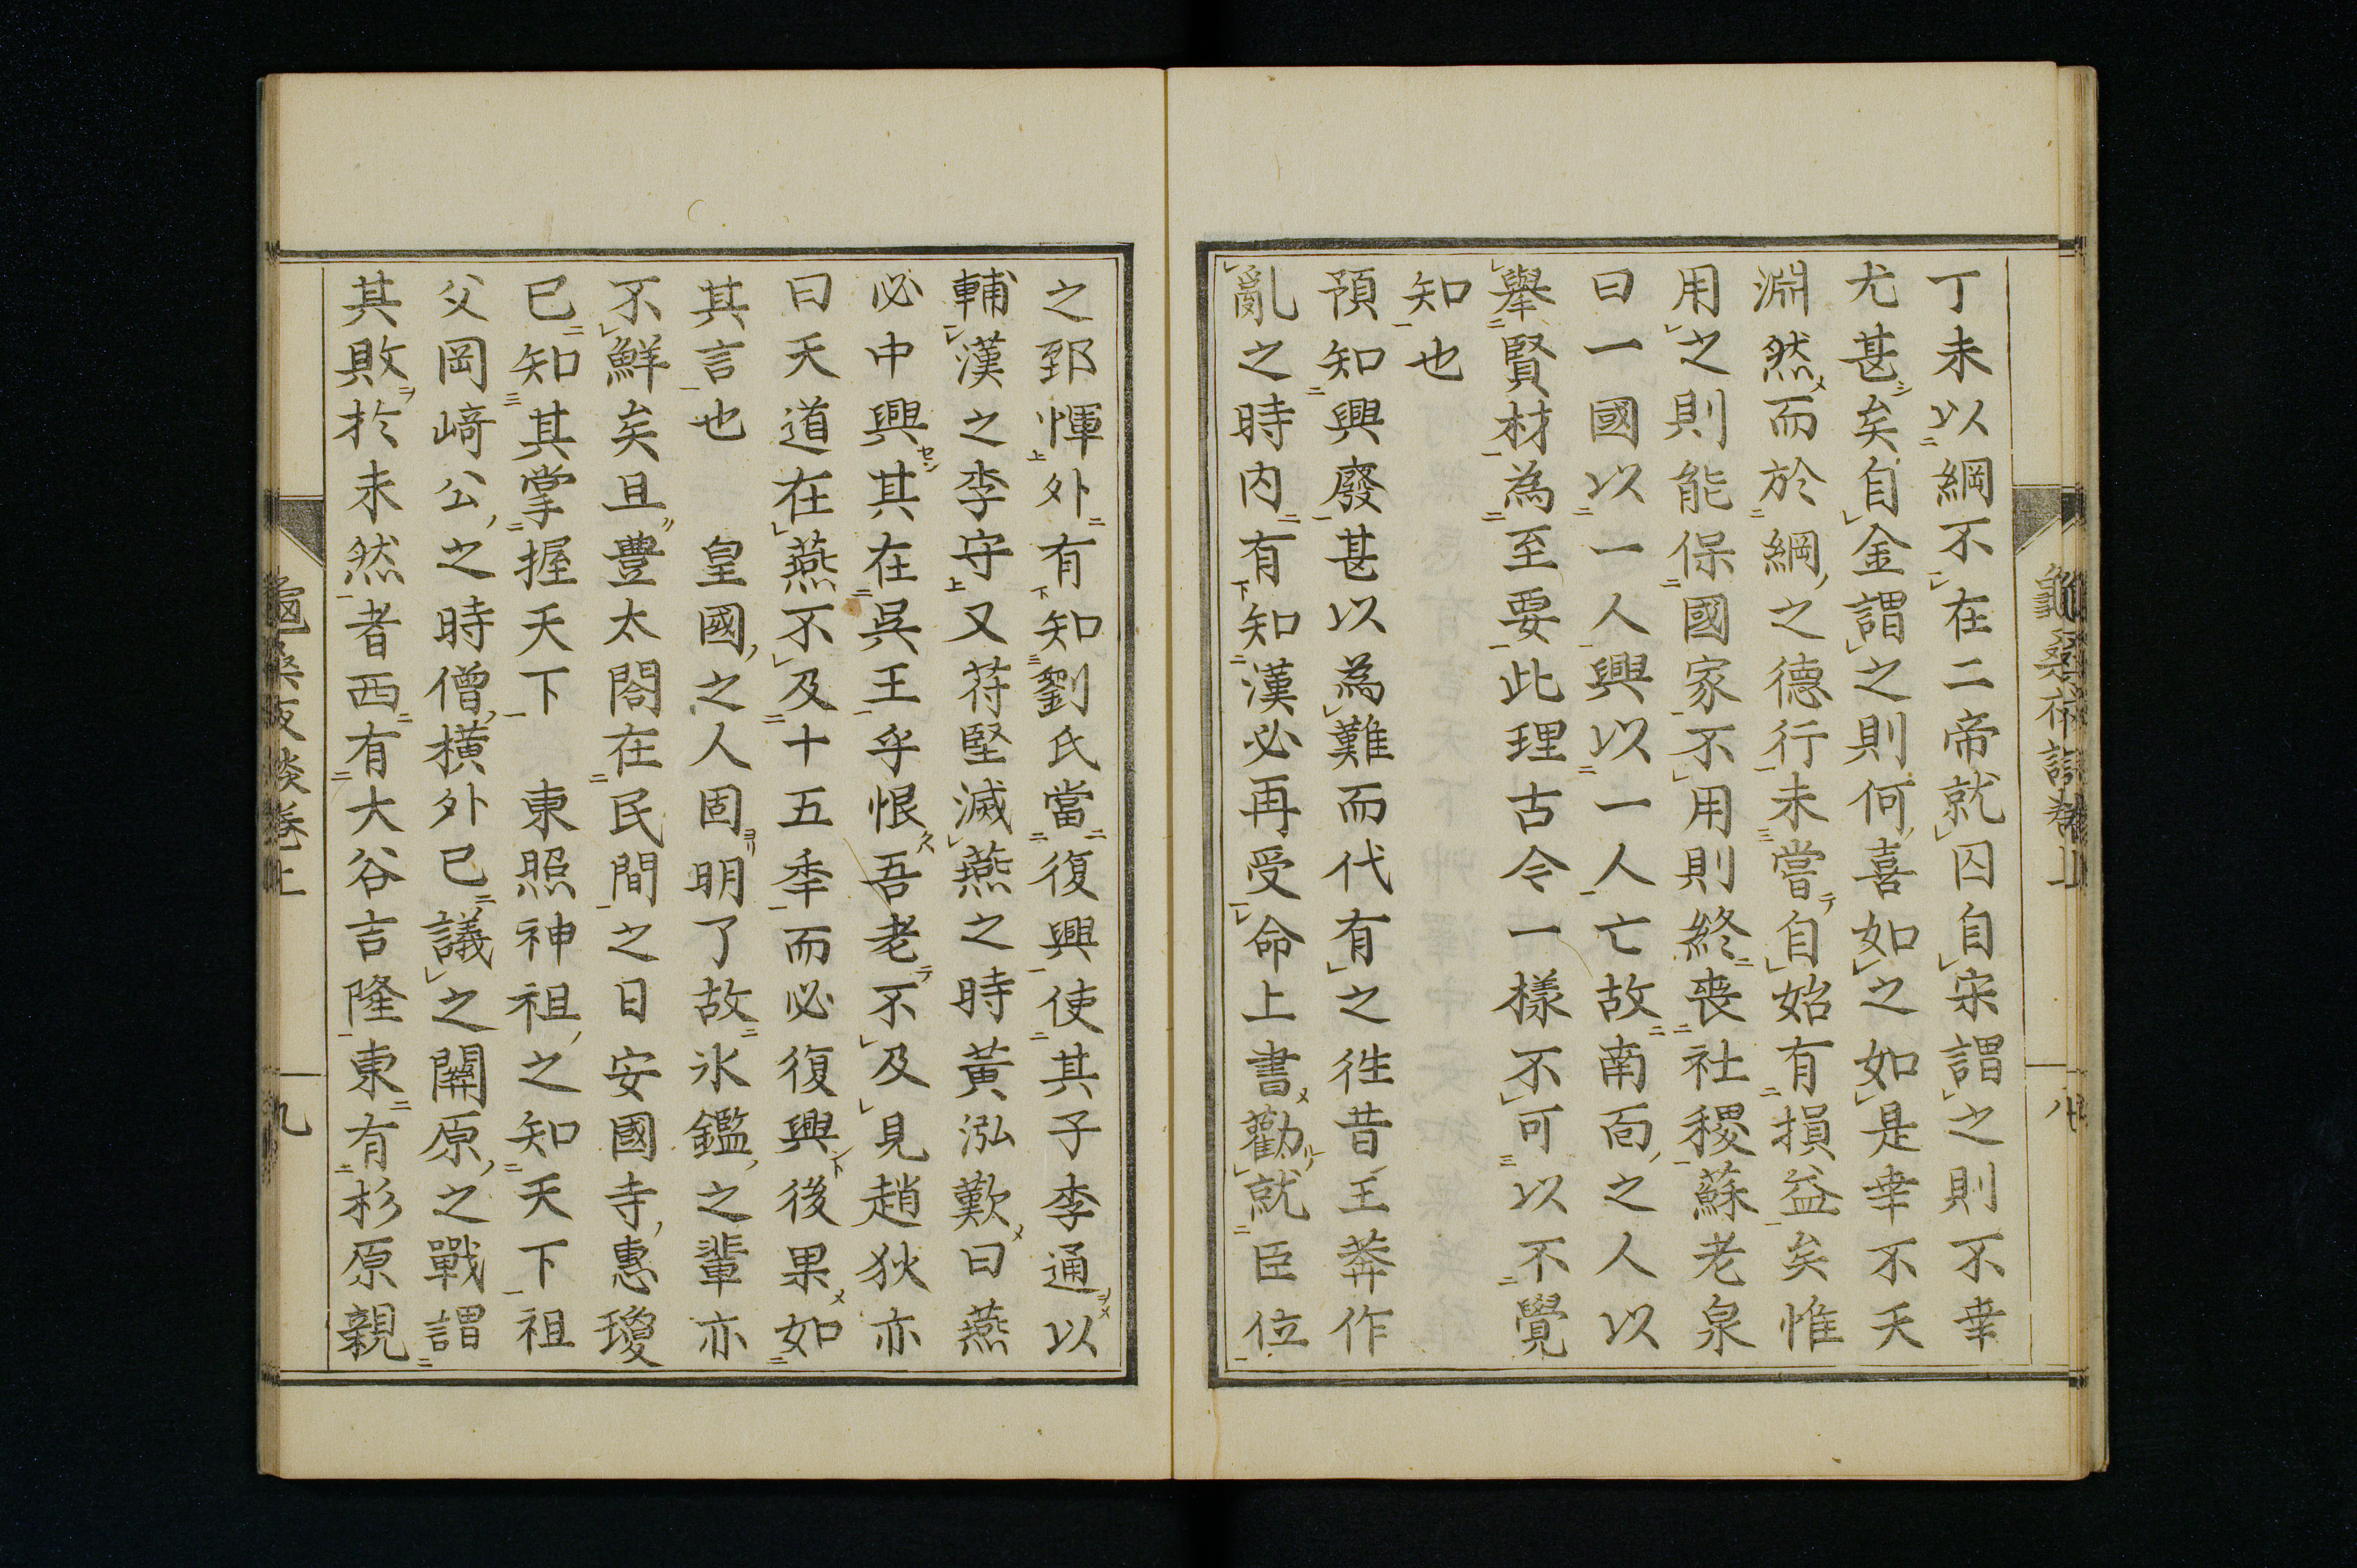 丁未以綱不在二帝就囚自宋謂之則不幸
尤甚矣自金謂之則何喜如之如是幸不天
淵然而於綱之德行未嘗自始有損益矣惟
用之則能保國家不用則終喪社稷蘇老泉
曰一國以一人興以一人亡故南面之人以
舉賢材為至要此理古今一樣不可以不覺
知也
預知興廢甚以為難而代有之徃昔王莽作
亂之時内有知漢必再受命上書勸就臣位
之郅惲外有知劉氏當復興使其子李通以
輔漢之李守又苻堅滅燕之時黃泓歎曰燕
必中興其在吳王乎恨吾老不及見趙狄亦
曰天道在燕不及十五秊而必復興後果如
其言也 皇國之人固明了故氷鑑之輩亦
不鮮矣且豊太閤在民間之日安國寺惠瓊
已知其掌握天下 東照神祖之知天下祖
父岡﨑公之時僧橫外已議之關原之戰謂
其敗於未然者西有大谷吉隆東有杉原親
八
卷上
九